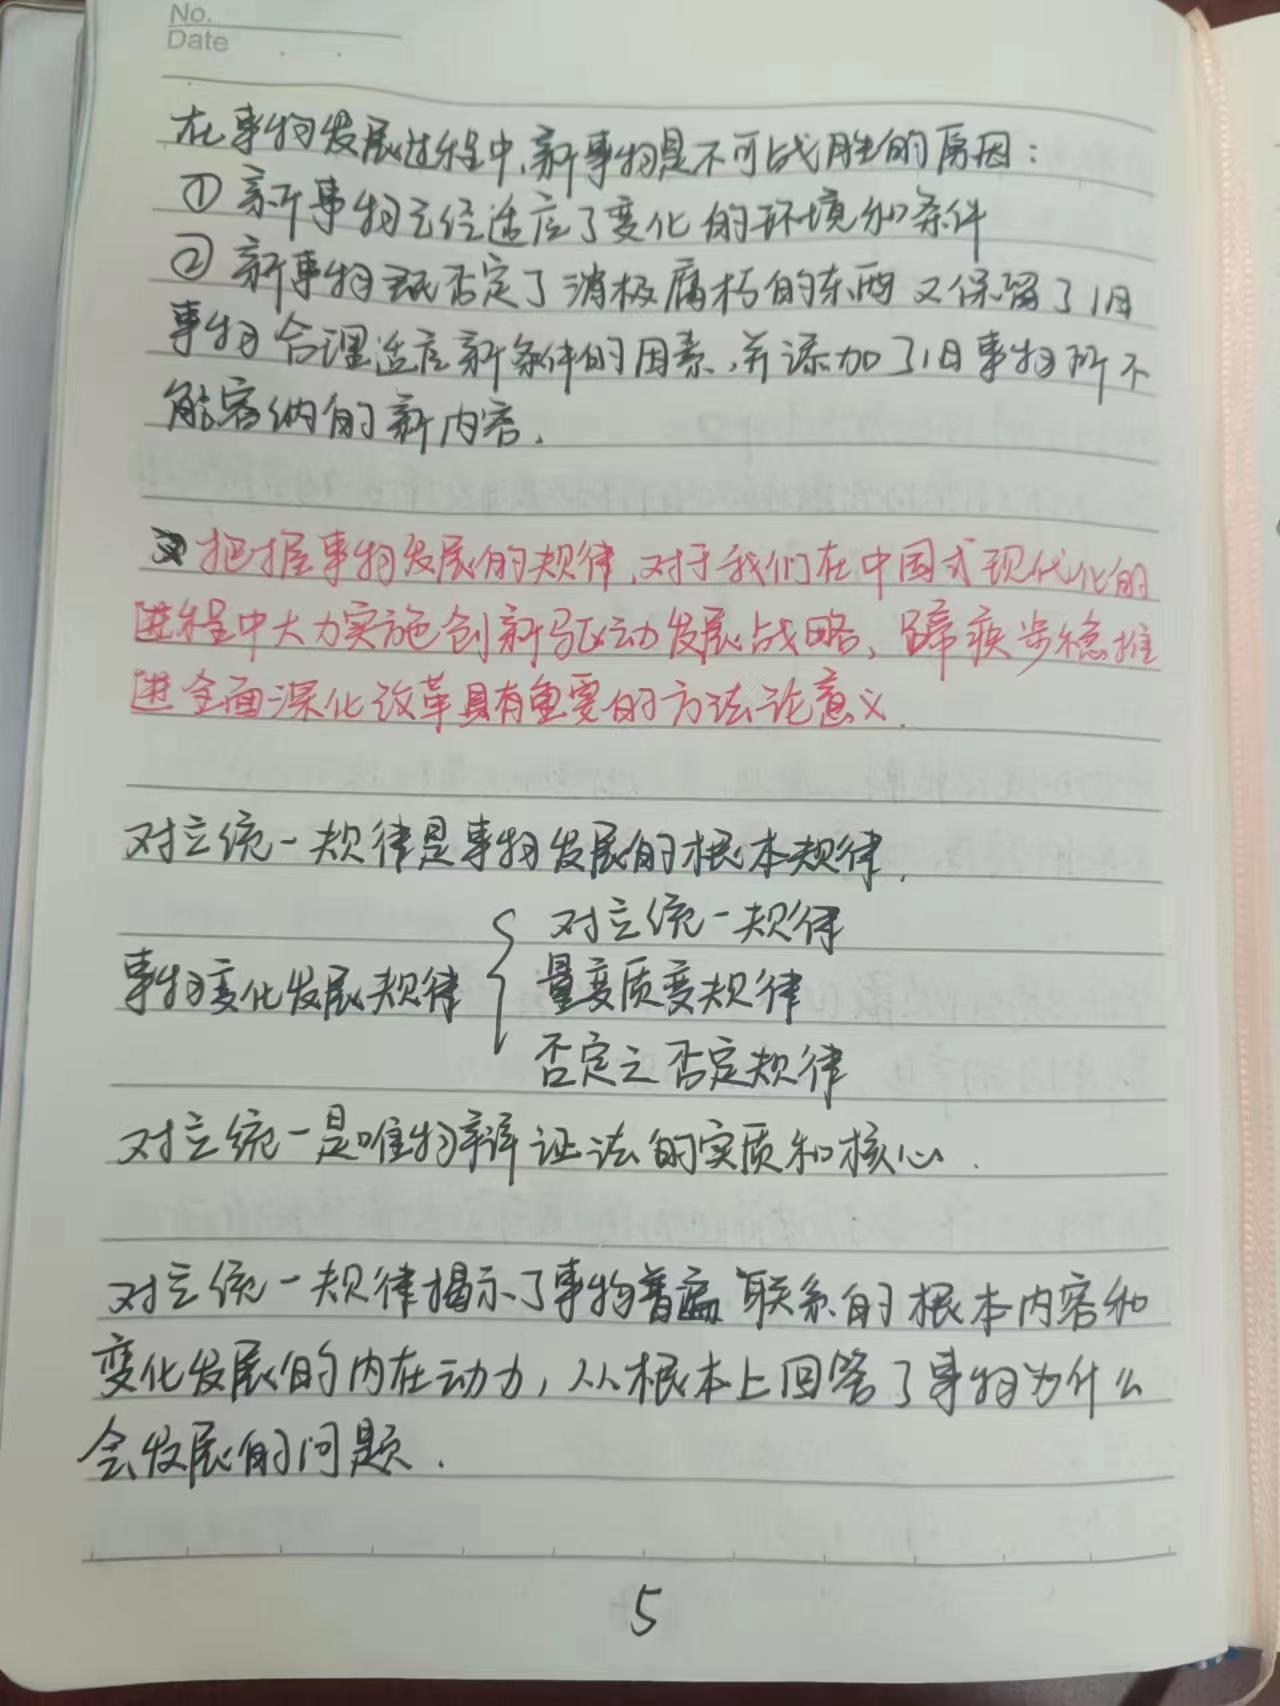 No.
Date
在事物发展过程中,新事物是不可战胜的原因:
① 新事物已经适应了变化的环境和条件
② 新事物既否定了消极腐朽的东西又保留了旧
事物合理适应新条件的因素,并添加了旧事物所不
能容纳的新内容.
把握事物发展的规律,对于我们在中国式现代化的
进程中大力实施创新驱动发展战略、蹄疾步稳推
进全面深化改革具有重要的方法论意义.
对立统一规律是事物发展的根本规律.
对立统一规律
事物变化发展规律 { 量变质变规律
否定之否定规律
对立统一是唯物辩证法的实质和核心.
对立统一规律揭示了事物普遍联系的根本内容和
变化发展的内在动力,从根本上回答了事物为什么
会发展的问题.
5